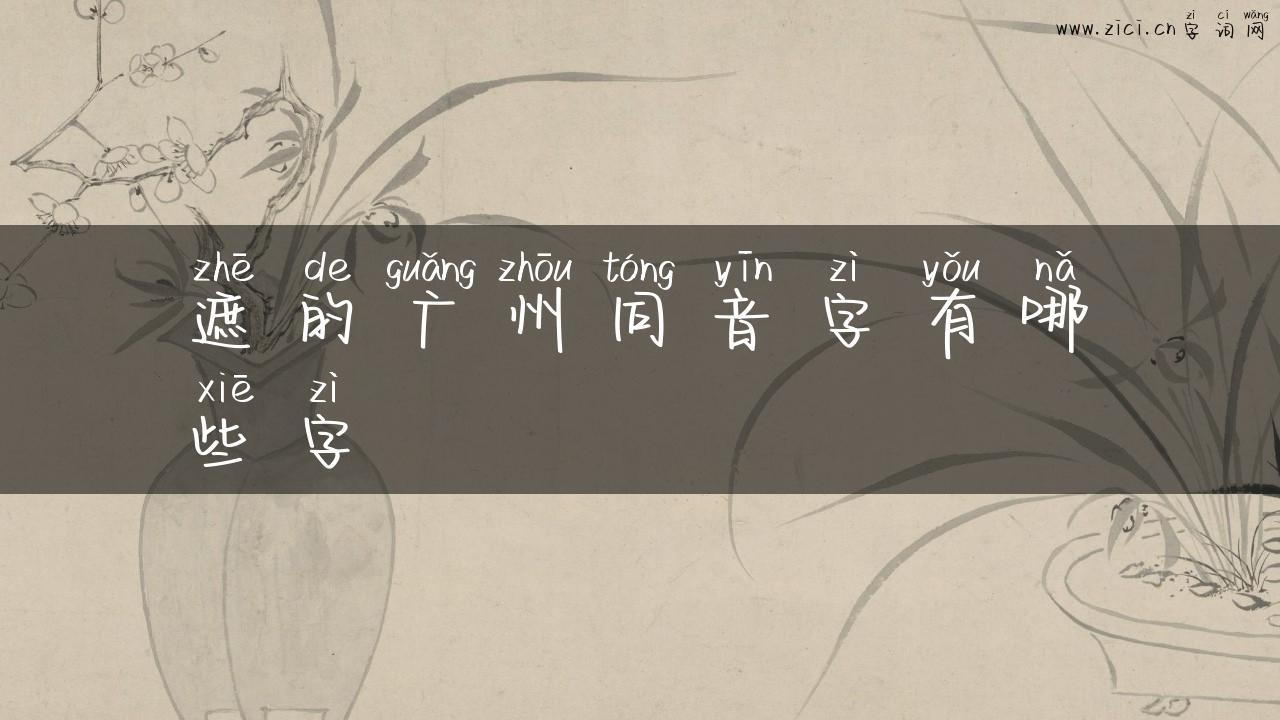 zì cí wǎng
www.zici.cn 字 词 网
zhē de guǎng zhōu tóng yīn zì yǒu nǎ
遮 的 广 州 同 音 字 有 哪
xiē zì
些 字